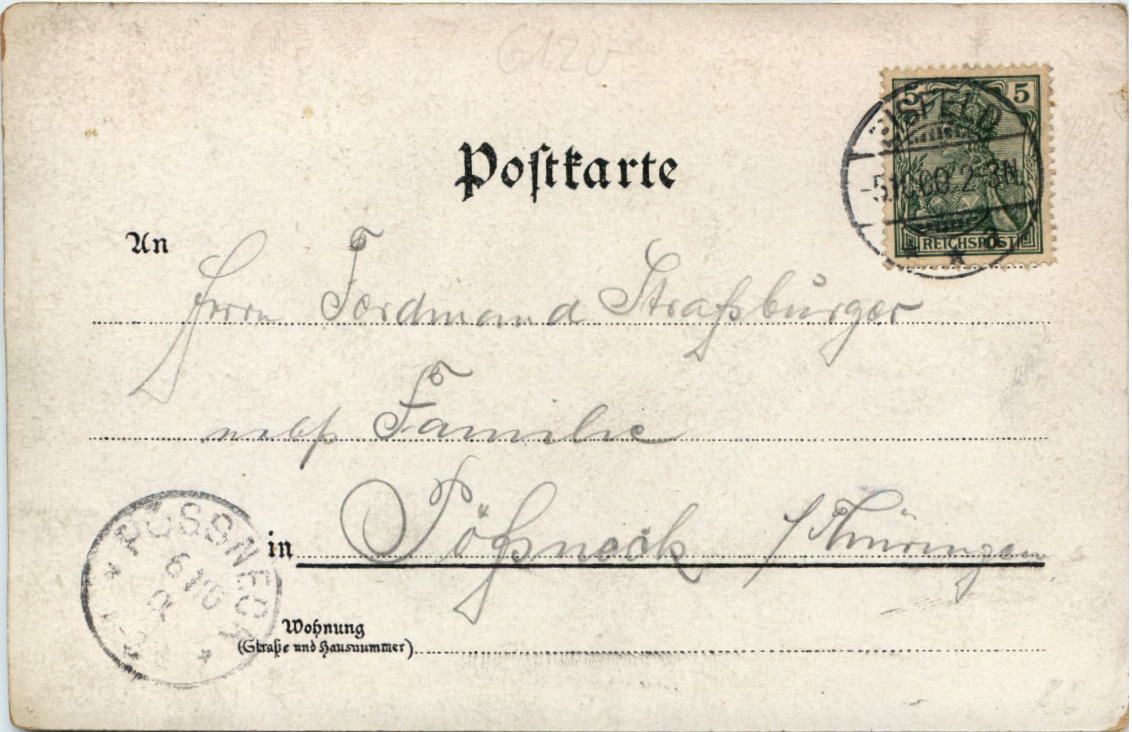 6120
Postkarte
5 5
REICHSPOST
EISFELD
-5.10.00. 2-3N.
* *
An
Herrn Ferdinand Straßburger
nebst Familie
in Pößneck /Thüringen
PÖSSNECK
6/10
Wohnung
(Straße und Hausnummer)